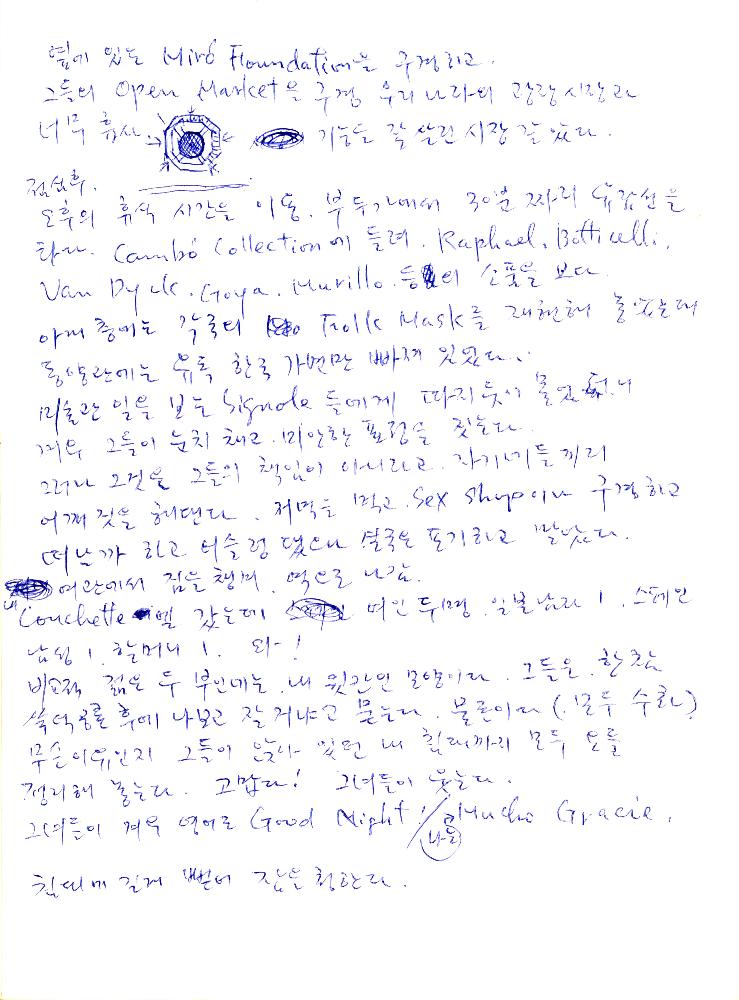 옆에 있는 Miró Foundation을 구경하고.
그들의 Open Market을 구경 우리나라의 광장시장과
너무 유사 기능을 잘 살린 시장 같았다.
점심후.
오후의 휴식 시간을 이용. 부두가에서 30분 짜리 유람선을
타다. Cambó Collection에 들려. Raphael. Botticelli.
Van Dyck. Goya. Murillo. 등의 소품을 보다.
아래 층에는 각국의 Folk Mask를 재현해 놓았는데
동양관에는 유독 한국 가면만 빠져 있었다.
미술관 일을 보는 Signola 들에게 따지듯이 물었더니
겨우 그들이 눈치 채고. 미안한 표정을 짓는다.
그러나 그것은 그들의 책임이 아니라고. 자기네들끼리
어깨 짓을 해댄다. 저녁을 먹고. Sex Shop이나 구경하고
떠날까 하고 어슬렁 댔으나 결국은 포기하고 말았다.
여관에서 짐을 챙겨. 역으로 나감.
내 Couchette 엘 갔는데 여인 두명. 일본남자 1. 스페인
남성 1. 할머니 1. 와-!
비교적 젊은 두 부인네는. 내 윗칸인 모양이다. 그들은. 한참
후에 나보고 잘거냐고 묻는다. 물론이다 (모두 수화)
무슨이유인지 그들이 앉아 있던 내 침대까지 모두 요를
정리해 놓는다. 고맙다! 그녀들이 웃는다.
그녀들이 겨우 영어로 Good Night! / Mucho Gracie.
나는
침대에 길게 뻗어 잠을 청한다.